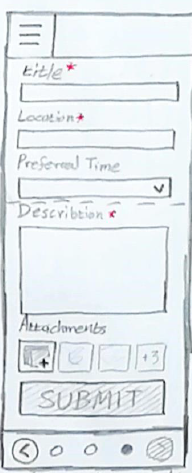 title*
Location*
Preferred Time
Describtion *
Attachments
+3
SUBMIT